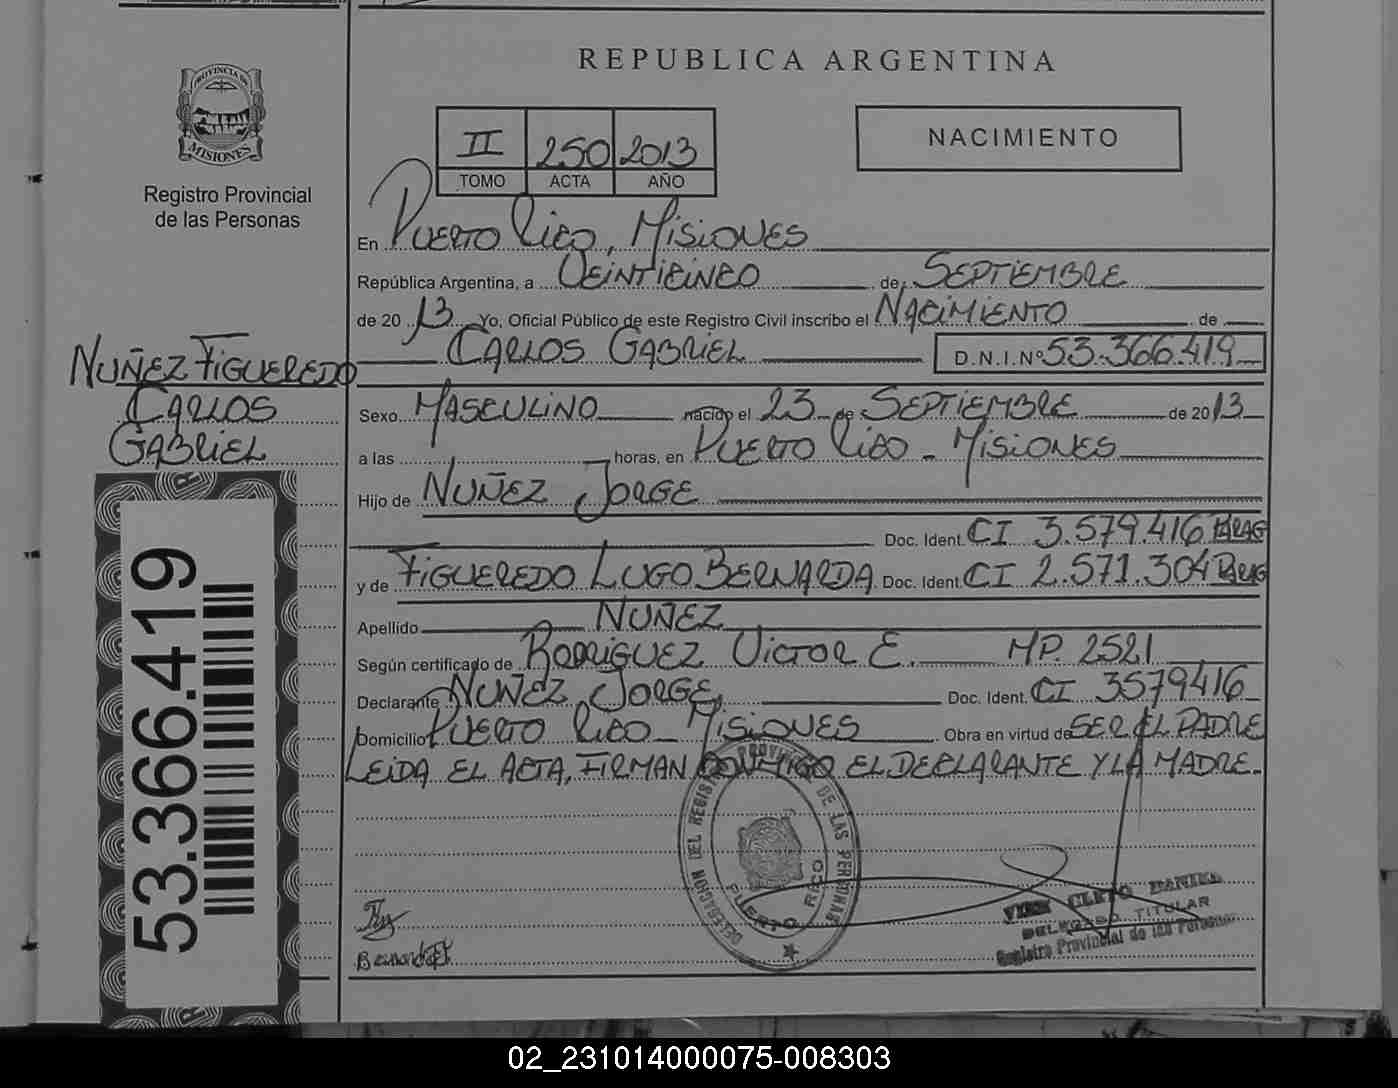 REPUBLICA ARGENTINA
PROVINCIA DE
MISIONES
Registro Provincial
de las Personas
II 250 2013
TOMO ACTA AÑO
NACIMIENTO
En Puerto Rico, Misiones
República Argentina, a Veinticinco de Septiembre
de 20 13 Yo, Oficial Público de este Registro Civil inscribo el Nacimiento de
Carlos Gabriel D.N.I.Nº 53.366.419
Nuñez Figueredo
Carlos
Gabriel
Sexo Masculino nacido el 23 de Septiembre de 2013
a las horas, en Puerto Rico - Misiones
Hijo de Nuñez Jorge
Doc. Ident. CI 3.579.416 Parag
y de Figueredo Lugo Bernarda Doc. Ident. CI 2.571.304 Parag
Apellido Nuñez
Según certificado de Rodriguez Victor E. MP. 2521
Declarante Nuñez Jorge Doc. Ident. CI 3579416
Domicilio Puerto Rico - Misiones Obra en virtud de ser el padre
Leida el acta, firman conmigo el declarante y la madre.
53.366.419
DELEGACION DEL REGISTRO PROVINCIAL DE LAS PERSONAS
PUERTO RICO
DELEGADO TITULAR
Registro Provincial de las Personas
02_231014000075-008303